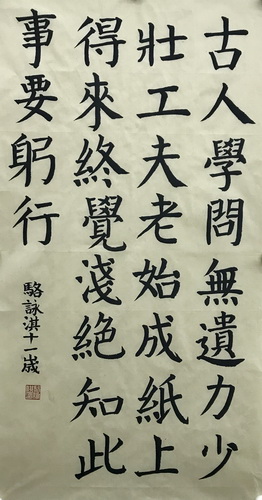 古人學問無遺力少
壯工夫老始成紙上
得來終覺淺絕知此
事要躬行
駱詠淇十一歲